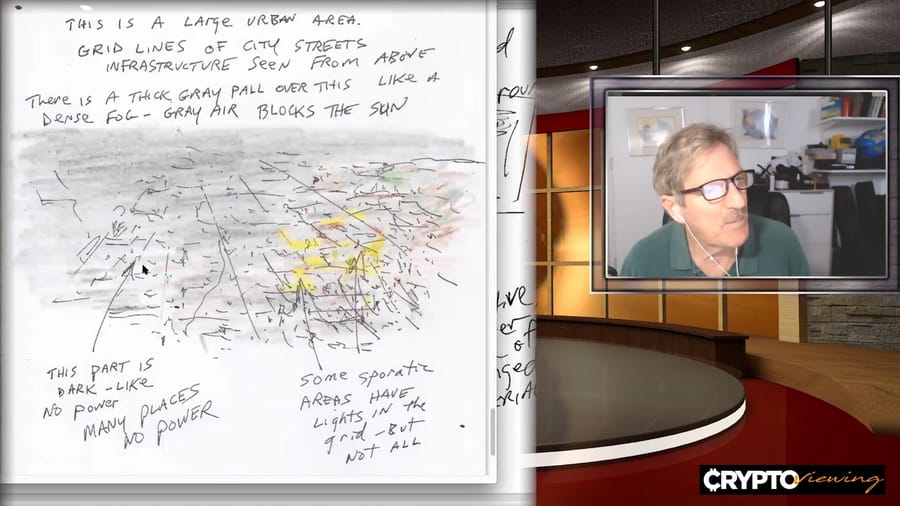 THIS IS A LARGE URBAN AREA.
GRID LINES OF CITY STREETS
INFRASTRUCTURE SEEN FROM ABOVE
THERE IS A THICK GRAY PALL OVER THIS LIKE A
DENSE FOG - GRAY AIR BLOCKS THE SUN
THIS PART IS
DARK - LIKE
NO POWER
MANY PLACES
NO POWER
SOME SPORATIC
AREAS HAVE
LIGHTS IN the
grid - BUT
NOT ALL
CRYPTOviewing